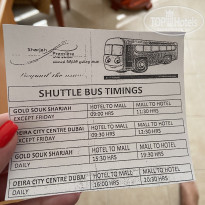 Sharjah
Premiere
Beyond the
SHUTTLE BUS TIMINGS
GOLD SOUK SHARJAH
EXCEPT FRIDAY
HOTEL TO MALL
09:00 HRS
MALL TO HOTEL
11:30 HRS
DEIRA CITY CENTRE DUBAI
EXCEPT FRIDAY
HOTEL TO MALL
09:30 HRS
MALL TO HOTEL
12:30 HRS
GOLD SOUK SHARJAH
DAILY
HOTEL TO MALL
15:30 HRS
MALL TO HOTEL
19:30 HRS
DEIRA CITY CENTRE DUBAI
DAILY
HOTEL TO MALL
16:00 HRS
MALL TO HOTEL
20:30 HRS
TopHotels